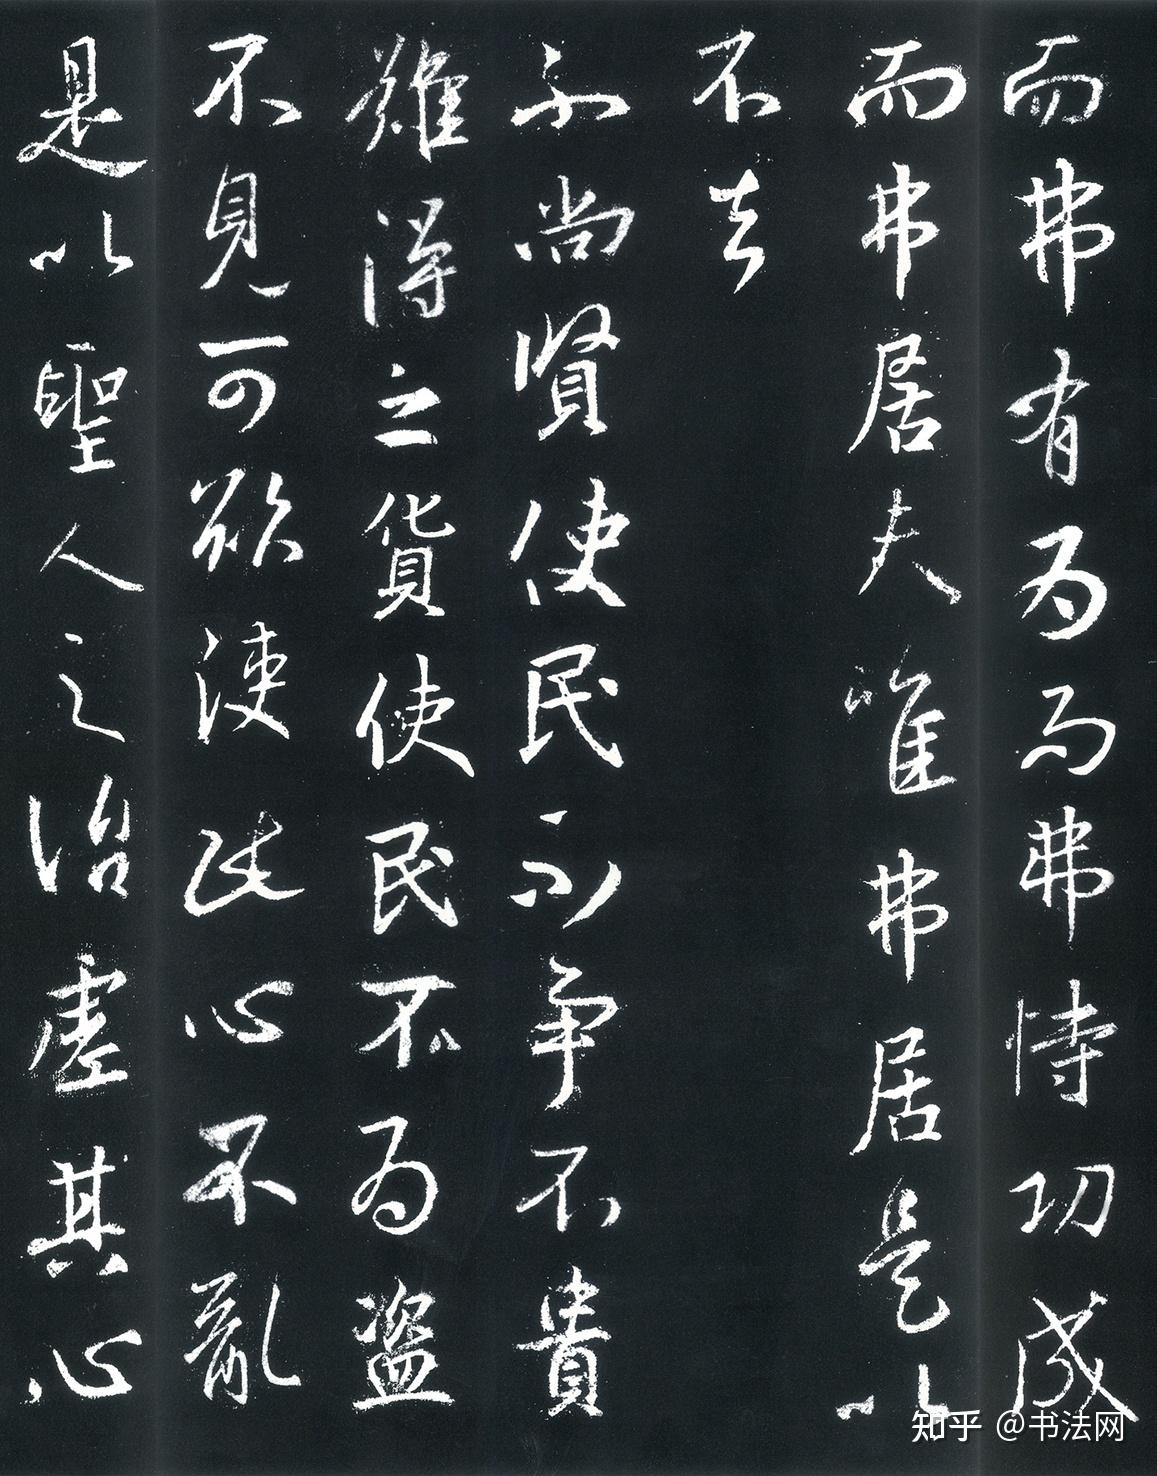 而弗有为而弗恃功成
而弗居夫唯弗居是以
不去
不尚賢使民不争不貴
難得之貨使民不为盗
不見可欲使民心不亂
是以聖人之治虛其心
知乎 @书法网